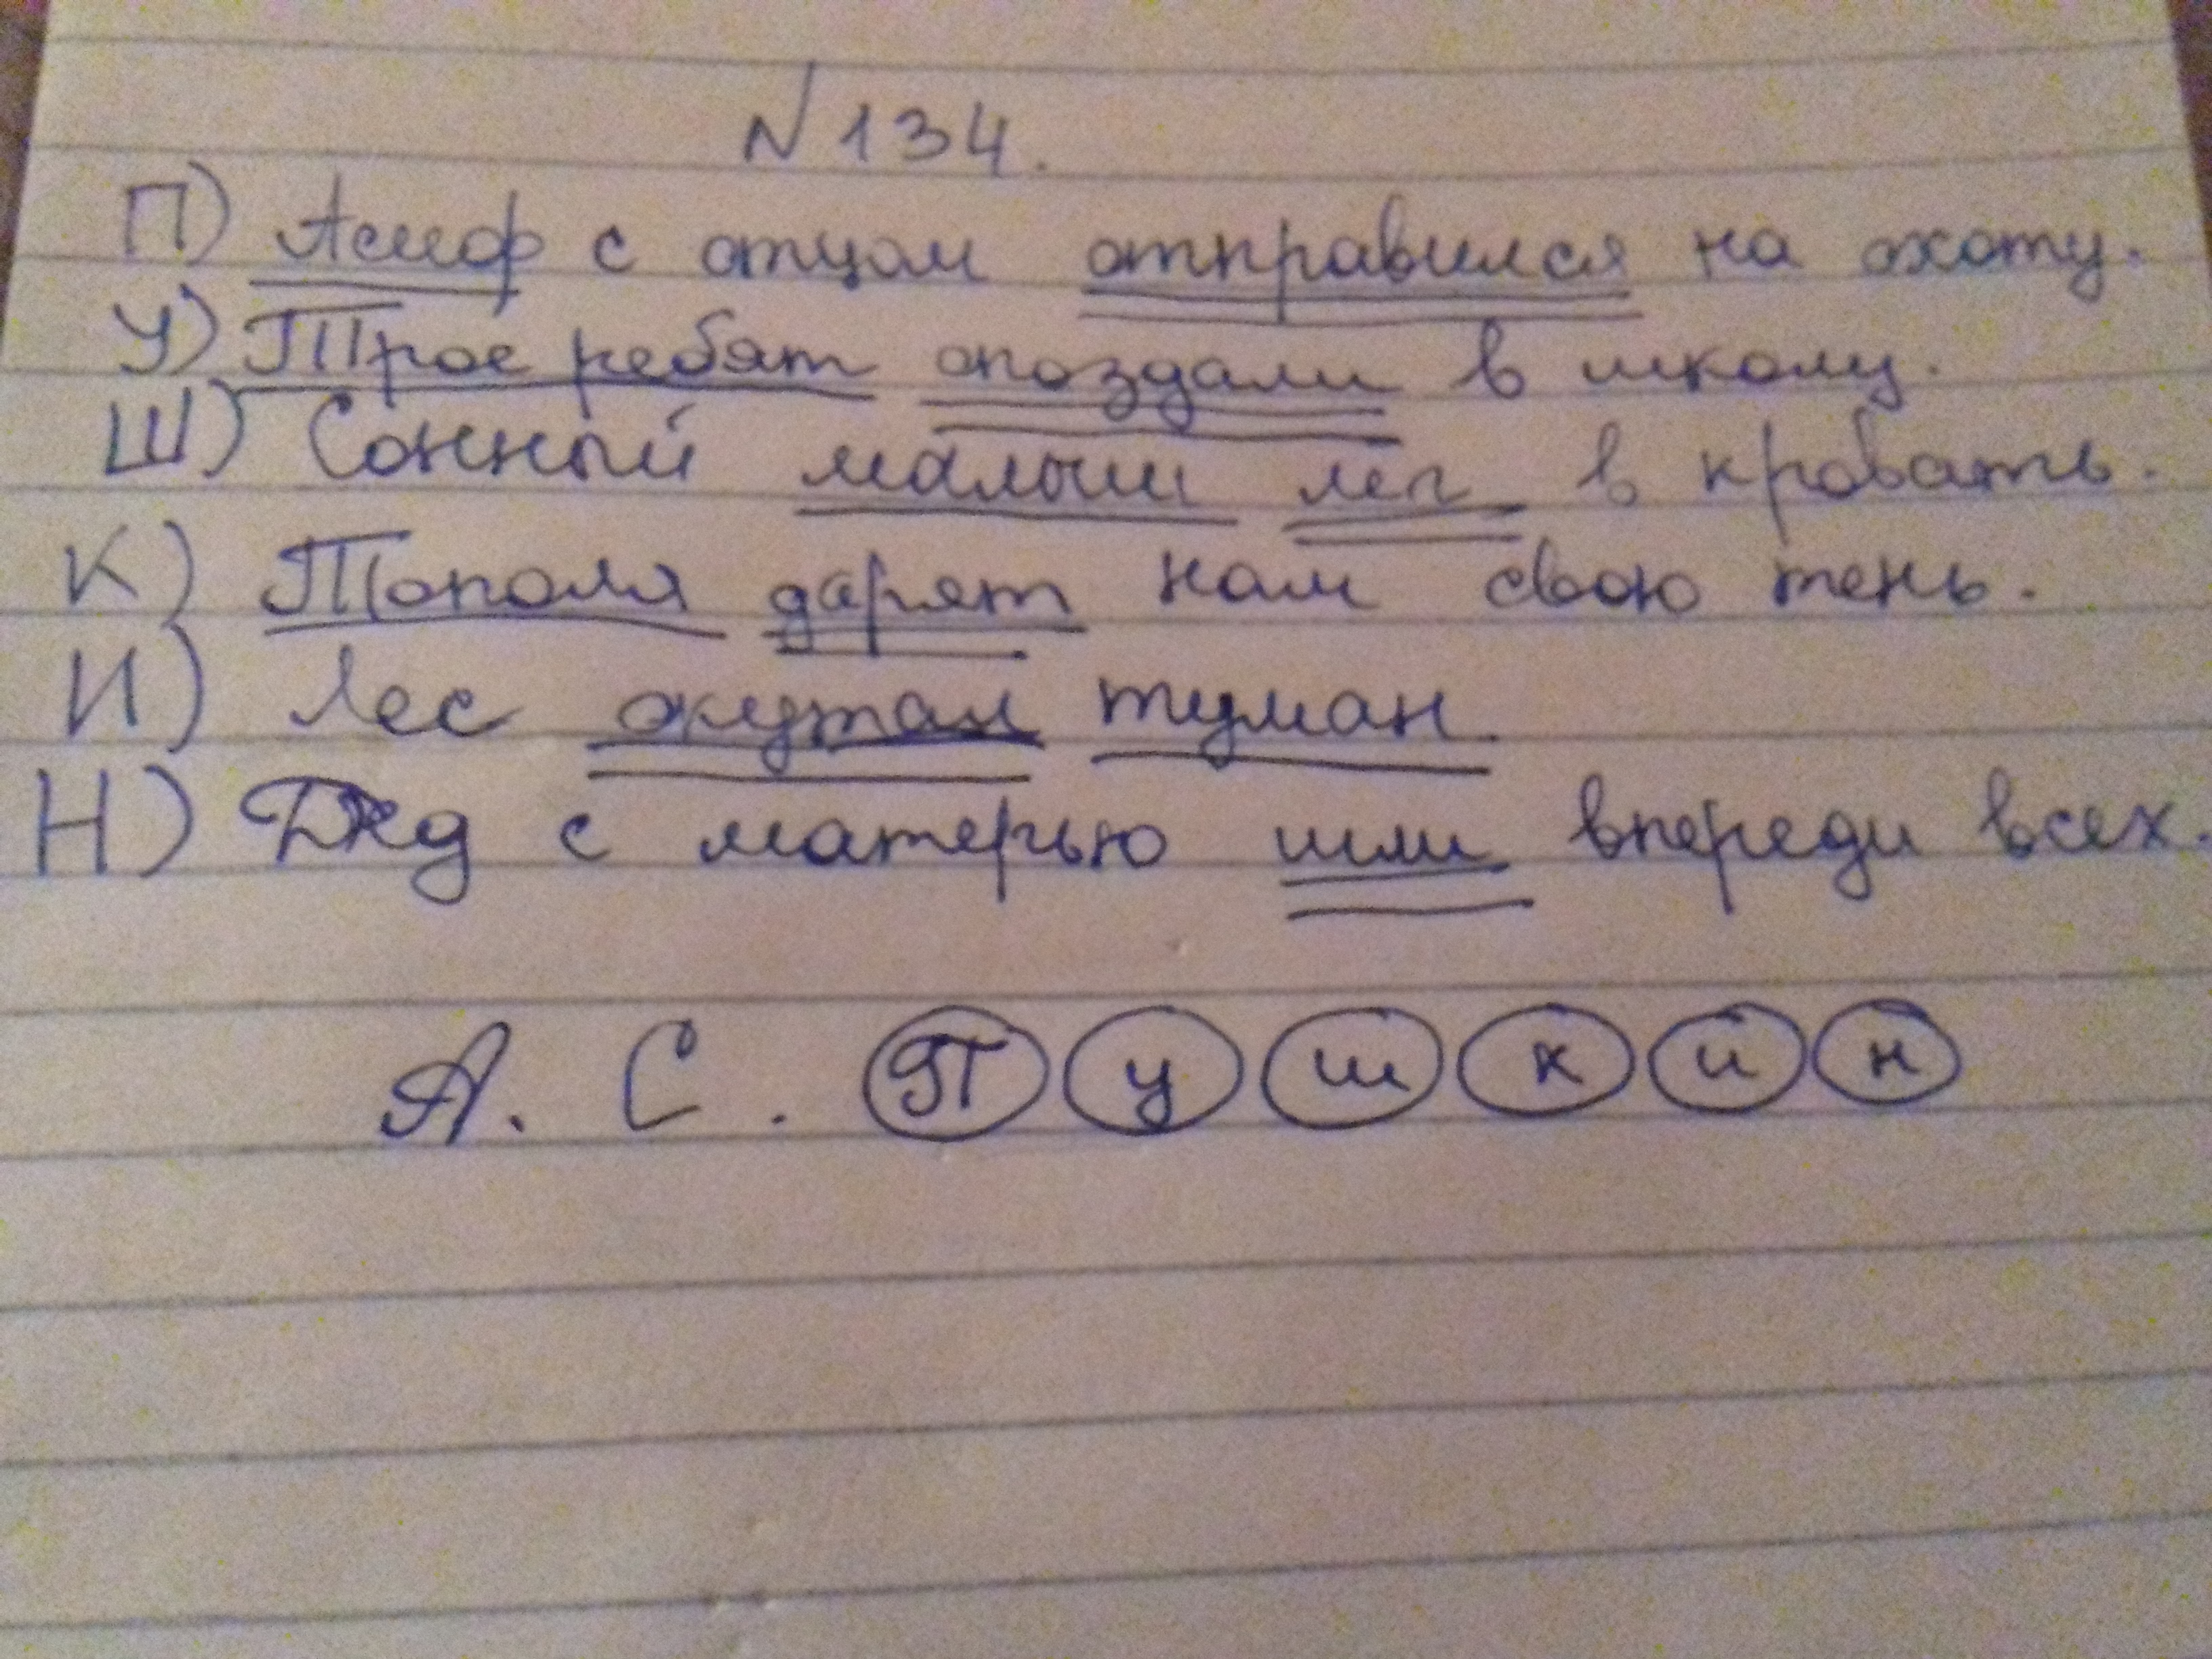 N134.
П) Асиф с отцом отправился на охоту.
У) Трое ребят опоздали в школу.
Ш) Сонный малыш лёг в кровать.
К) Тополя дарят нам свою тень.
И) Лес окутал туман.
Н) Дед с матерью шли впереди всех.
А. С. Пушкин